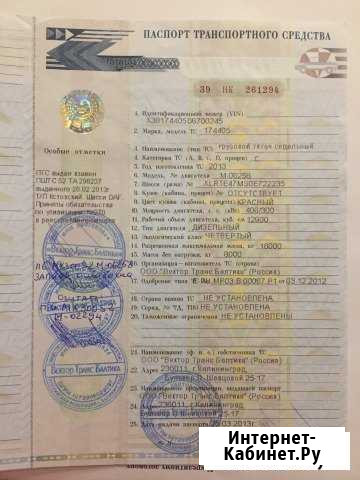 ПАСПОРТ ТРАНСПОРТНОГО СРЕДСТВА
39 НК 261294
1. Идентификационный номер (VIN)
X3B17440506700245
2. Марка, модель ТС 174405
3. Наименование (тип ТС) грузовой тягач седельный
4. Категория ТС (А, В, С, D, прицеп) C
5. Год изготовления ТС 2013
6. Модель, № двигателя
7. Шасси (рама) № XLRTE47MS0E722235
8. Кузов (кабина, прицеп) № ОТСУТСТВУЕТ
9. Цвет кузова (кабины, прицепа) КРАСНЫЙ
10. Мощность двигателя, л. с. (кВт) 408/300
11. Рабочий объем двигателя, куб. см 12900
12. Тип двигателя ДИЗЕЛЬНЫЙ
13. Экологический класс ЧЕТВЕРТЫЙ
14. Разрешенная максимальная масса, кг 18000
15. Масса без нагрузки, кг 8000
16. Организация - изготовитель ТС (страна)
ООО "Вектор Транс Балтика" (Россия)
17. Одобрение типа ТС №
МР03.В.00067.Р1 03.12.2012
18. Страна вывоза ТС НЕ УСТАНОВЛЕНА
19. Серия, № ТД, ТПО НЕ УСТАНОВЛЕНА
20. Таможенные ограничения НЕ УСТАНОВЛЕНЫ
21. Наименование (ф. и. о.) собственника ТС
ООО "Вектор Транс Балтика" (Россия)
22. Адрес 236011, г.Калининград,
Бульвар Л. Шевцовой 25-17
23. Наименование организации, выдавшей паспорт
ООО "Вектор Транс Балтика" (Россия)
24. Адрес 236011, г.Калининград,
Бульвар Л. Шевцовой 25-17
25. Дата выдачи паспорта .03.2013г.
Особые отметки
ПТС выдан взамен
ПШТС 52 ТА 298207
выданного 26.02.2013г.
Шасси DAF.
Приняты обязательства
по утилизации
в реестре
Вектор Транс Балтика
Вектор Транс Балтика
Интернет-
Кабинет.Ру